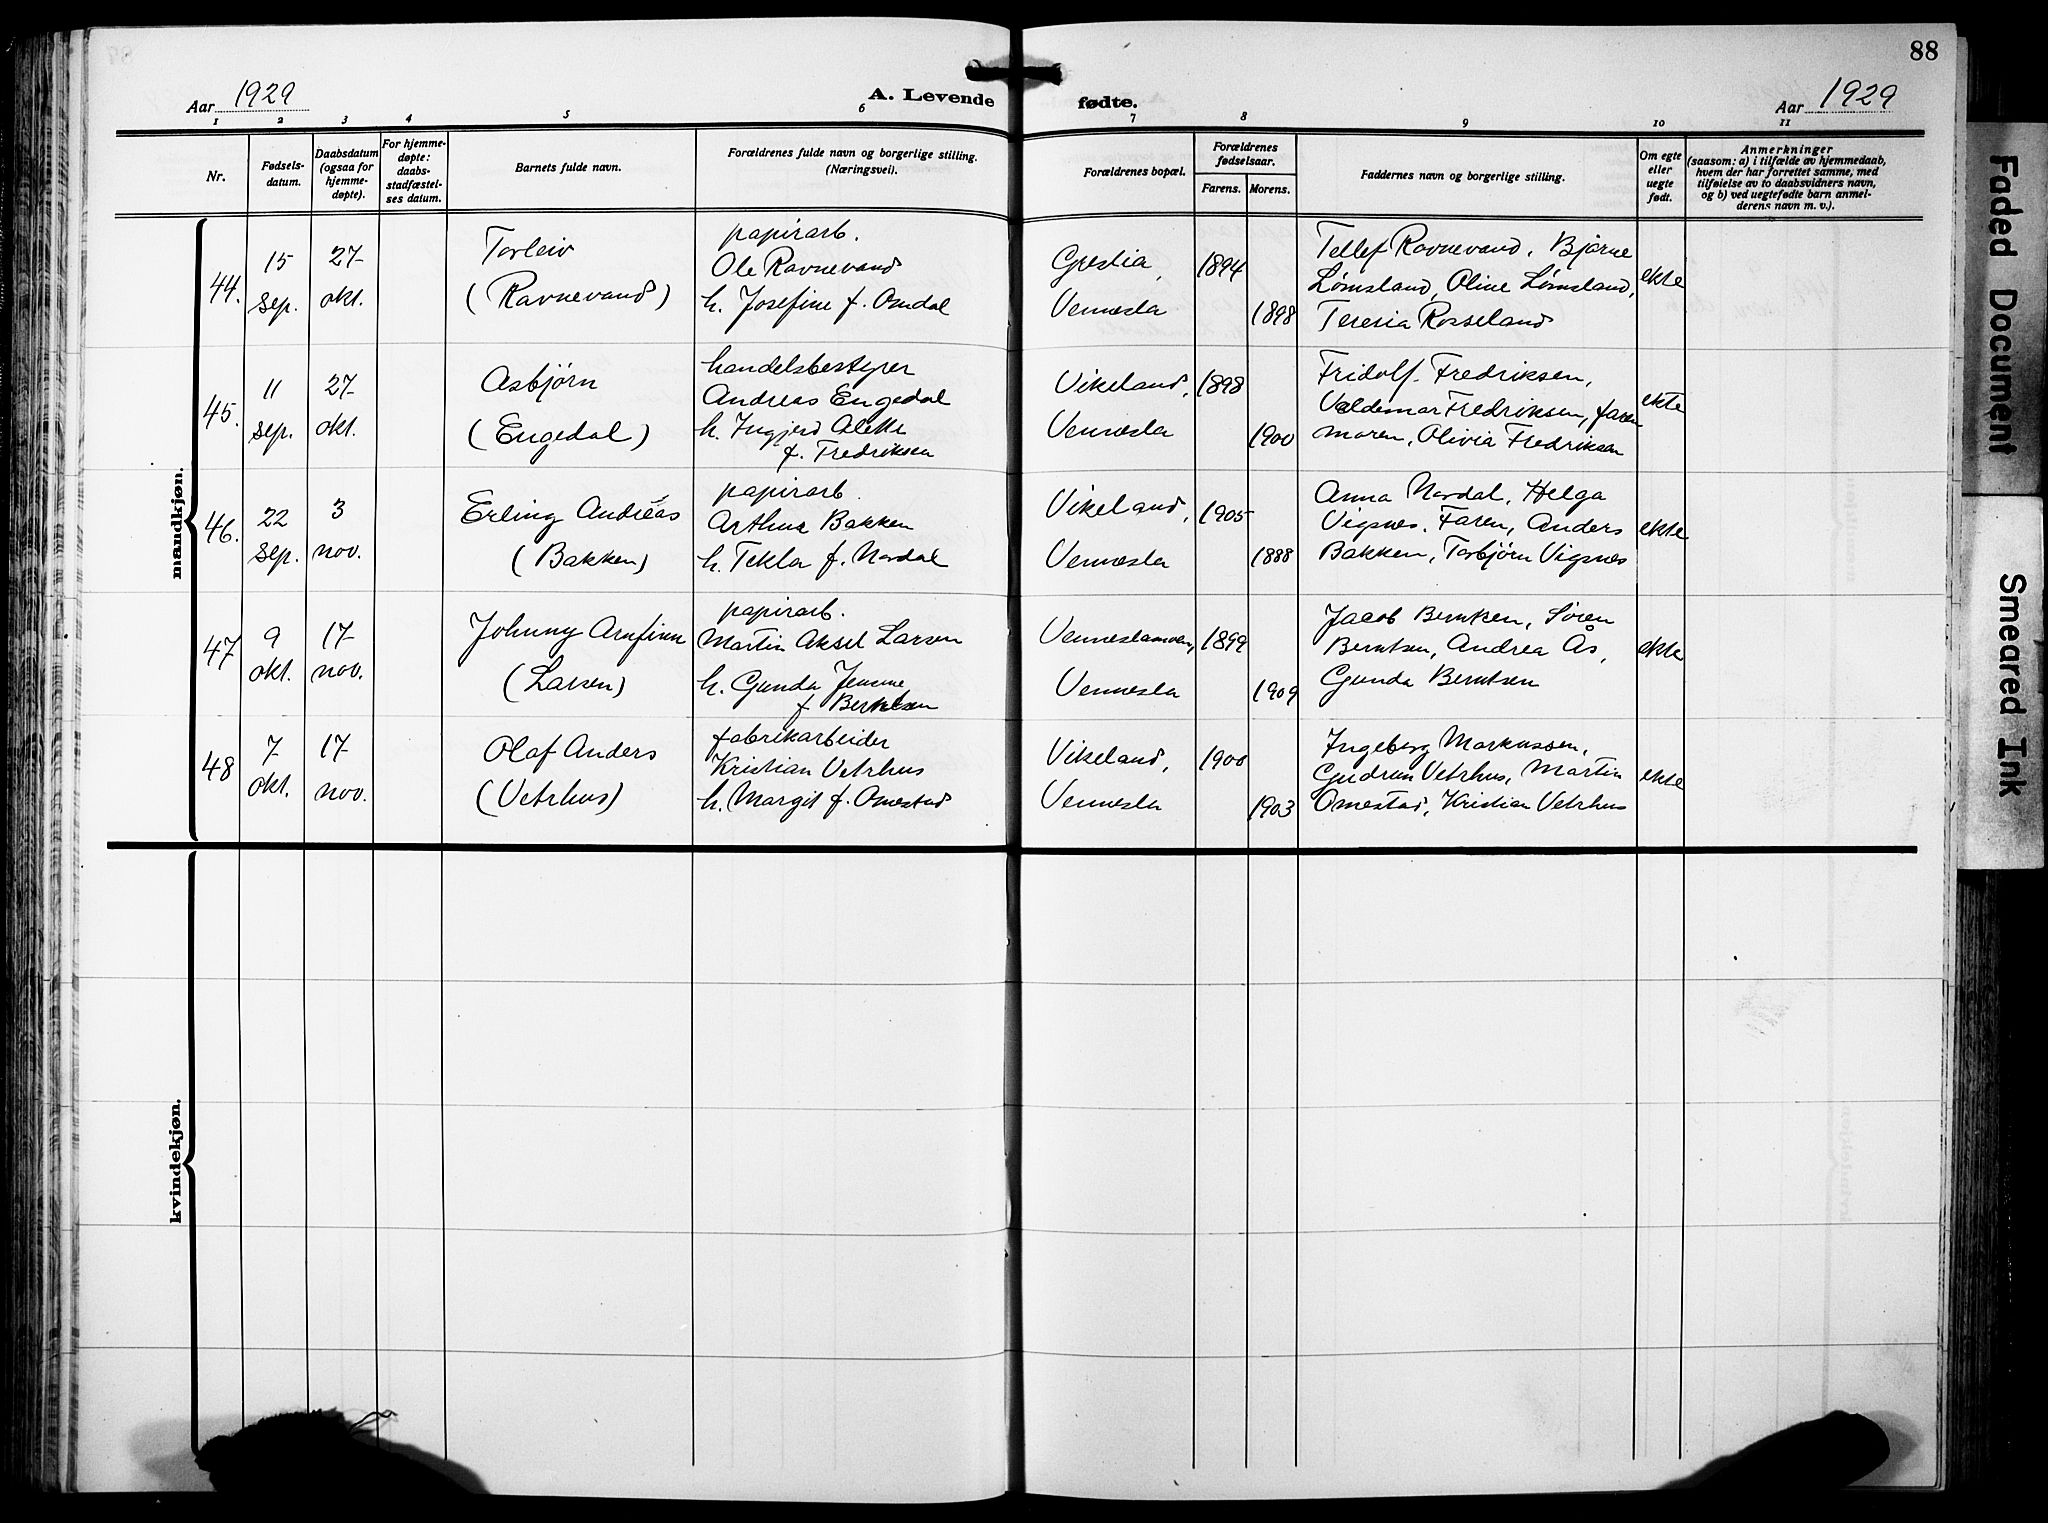 88
Aar 1929
A. Levende fødte.
Aar 1929
1 2 3 4 5 6 7 8 9 10 11
Nr.
Fødsels-
datum.
Daabsdatum
(ogsaa for
hjemme-
døpte).
For hjemme-
døpte:
daabs-
stadfæstel-
ses datum.
Barnets fulde navn.
Forældrenes fulde navn og borgerlige stilling.
(Næringsvei).
Forældrenes bopæl.
Forældrenes
fødselsaar.
Farens. Morens.
Faddernes navn og borgerlige stilling.
Om egte
eller
uegte
født.
Anmerkninger
(saasom: a) i tilfælde av hjemmedaab,
hvem der har forrettet samme, med
tilføielse av to daabsvidners navn,
og b) ved uegtefødte barn anmel-
derens navn m. v.).
mandkjøn.
44.
15
sep.
27
okt.
Torleiv
(Ravnevand)
papirarb.
Ole Ravnevand
h. Josefine f. Omdal
Vennesla
1894
1898
Tellef Ravnevand, Bjarne
Lømsland, Oline Lømsland,
Teresia Rosseland
ekte
45.
11
sep.
27
okt.
Asbjørn
(Engedal)
handelsbestyrer
Andreas Engedal
h. Ingjerd Alette
f. Fredriksen
Vikeland,
Vennesla
1898
1900
Fridolf Fredriksen,
Valdemar Fredriksen, faren
moren, Olivia Fredriksen
ekte
46.
22
sep.
3
nov.
Erling Andreas
(Bakken)
papirarb.
Arthur Bakken
h. Tekla f. Nordal
Vikeland,
Vennesla
1905
1888
Anna Nordal, Helga
Vigsnes, Faren, Anders
Bakken, Torbjørn Vigsnes
ekte
47
9
okt.
17
nov.
Johnny Arnfinn
(Larsen)
papirarb.
Martin Aksel Larsen
h. Gunda Jensine
f. Berntsen
Venneslamoen,
Vennesla
1899
1909
Jacob Berntsen, Søren
Berntsen, Andrea Ås,
Gunda Berntsen
ekte
48
7
okt.
17
nov.
Olaf Anders
(Vetrhus)
fabrikarbeider
Kristian Vetrhus
h. Margit f. Omestad
Vikeland,
Vennesla
1900
1903
Ingeborg Markussen,
Gudrun Vetrhus, Martin
Omestad, Kristian Vetrhus
ekte
kvindekjøn.
Faded Document
Smeared Ink